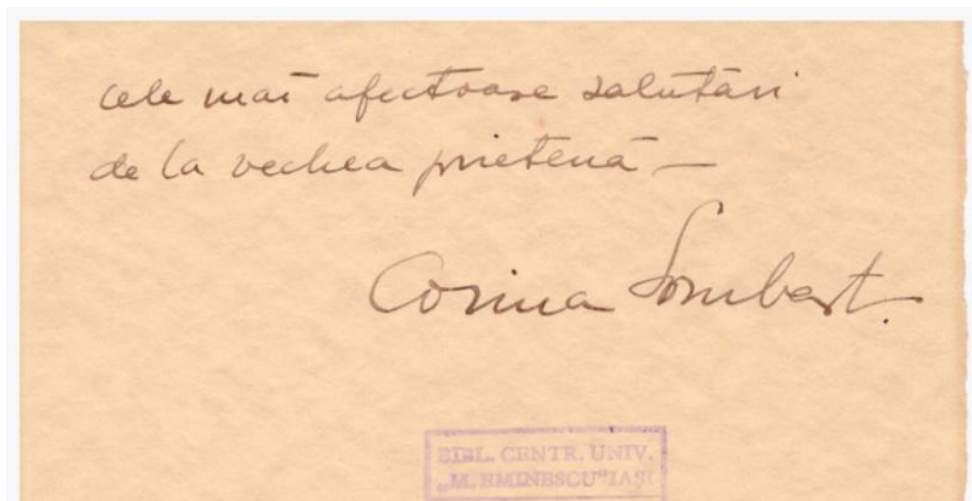 cele mai afectoase salutări
de la vechea prietenă —
Corina Sombart.
BIBL. CENTR. UNIV.
„M. EMINESCU" IAŞI